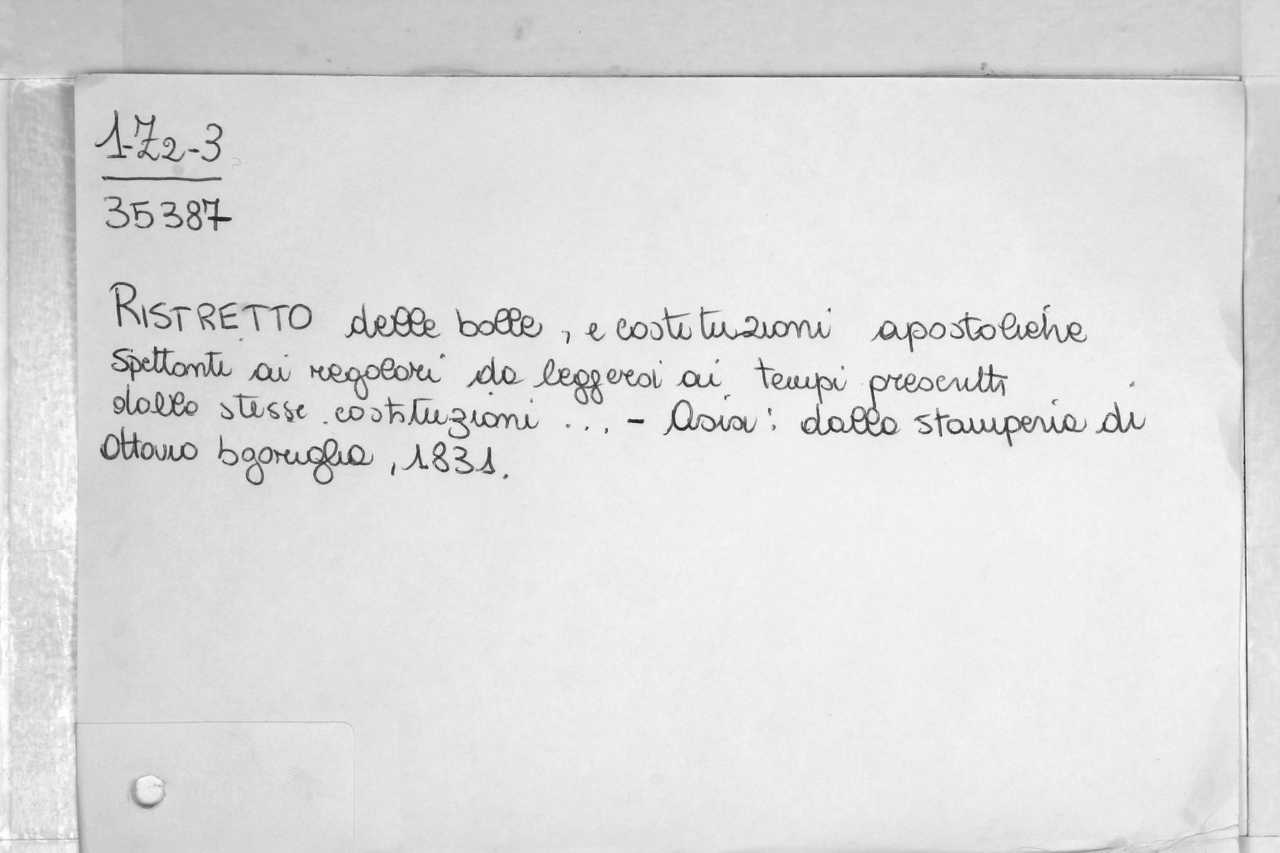 1-Z2-3
35387
RISTRETTO delle bolle, e costituzioni apostoliche
spettanti ai regolari da leggersi ai tempi prescritti
dalle stesse costituzioni ... - Asisi: dalla stamperia di
Ottavio Sgariglia, 1831.